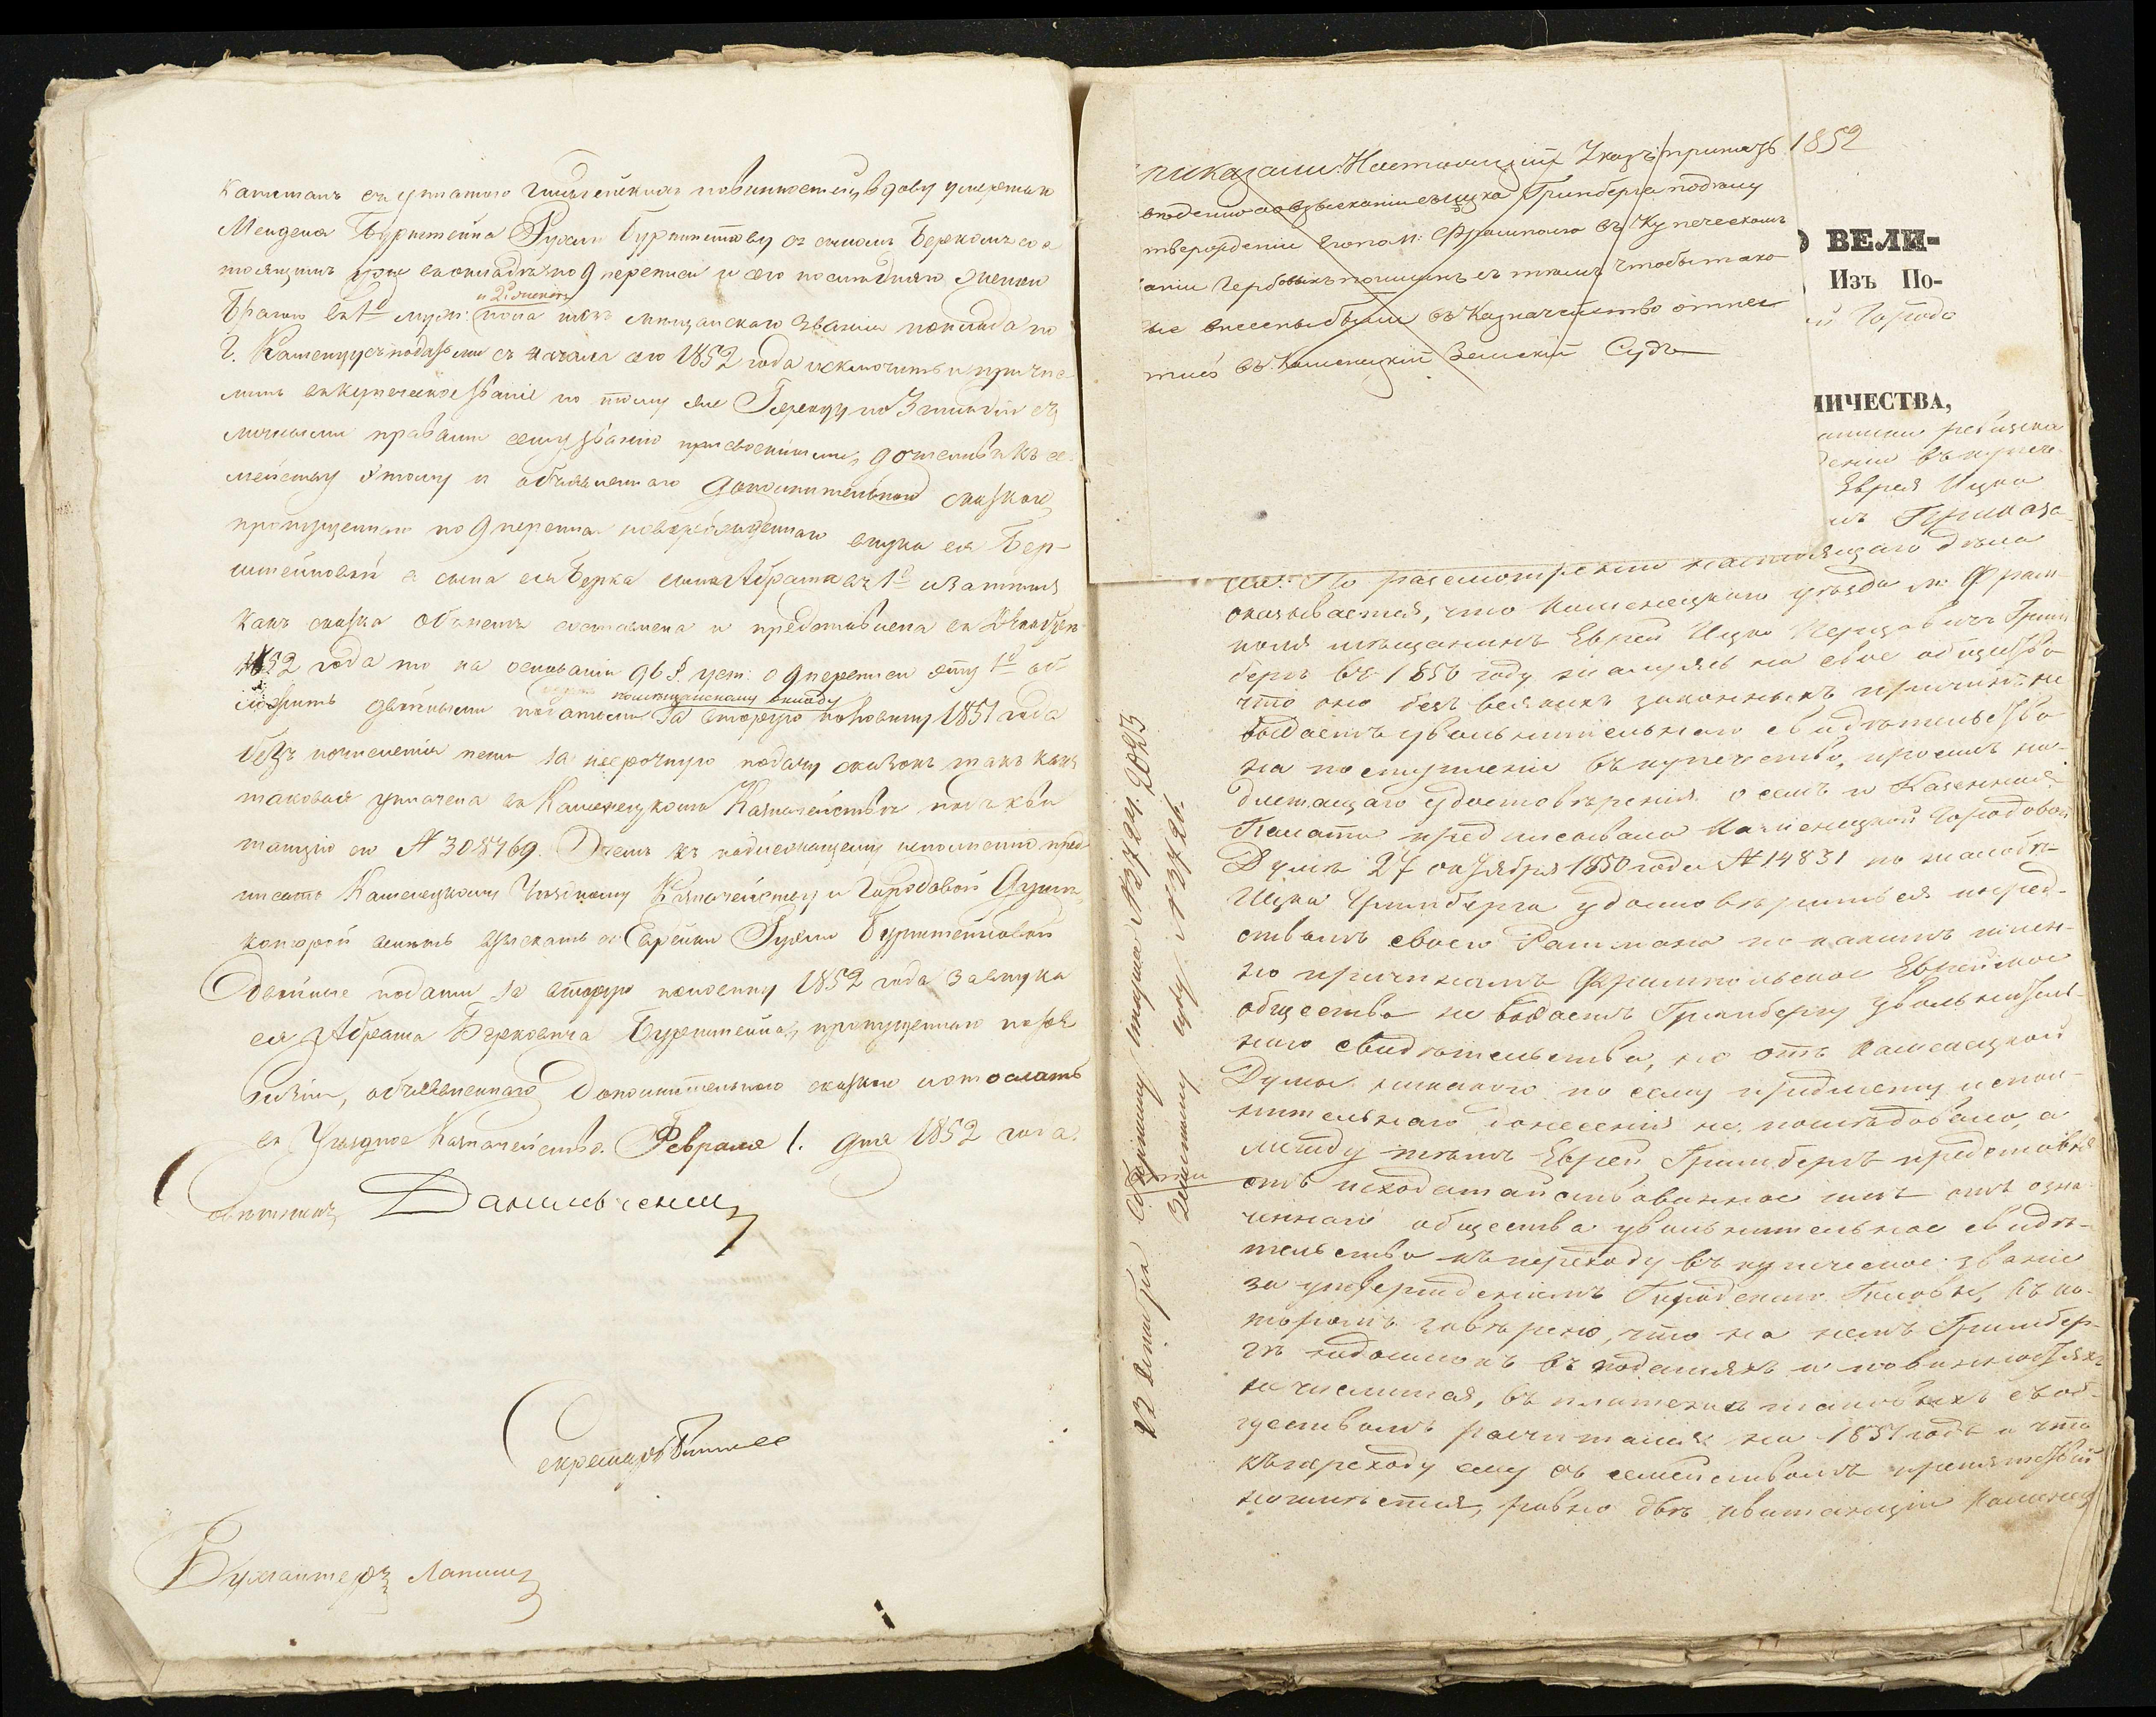 капиталъ съ уплатою гильдейскихъ повинностей, вдову умершаго
Менделя Бурштейна Рухлю Бурштейнову съ сыномъ Беркомъ со
стоящимъ уже въ окладѣ по 9 переписи и его послѣдняго женою
и 2й женск:
въ 1й муж: пола изъ мѣщанскаго званія и оклада по
г. Каменцу съ податьми съ начала сего 1852 года исключить и причис
лить въ купеческое званіе по тому же Городу по 3 гильдіи съ
личными правами сему званію присвоенными,
мейству этому и объявленнаго дополнительною сказкою
пропущеннаго по 9 переписи новорожденнаго внука ея Бер-
штейновой а сына ея Берка Абрама въ 1й
какъ сказка объ немъ составлена и представлена въ
1852 года то на основаніи 96 §. уст: о 9 переписи эту 1д об
помѣщайскому окладу
ложить двойными податьми за вторую половину 1851 года
безъ начисленія пени за несрочную подачу сказокъ такъ какъ
таковая уплачена въ Каменецкомъ Казначействѣ подъ кви
танцію съ № 308469. О чемъ къ надлежащему исполненію пред
писать Каменецкому Уѣздному Казначейству и Городовой Думѣ,
которой велѣть взыскать съ Еврейки Рухли Бурштейновой
двойные подати за вторую половину 1852 года за внука
ея Абрама Берковича Бурштейна, пропущеннаго по
ревизіи, объявленнаго дополнительною сказкою и отослать
въ Уѣздное Казначейство. Февраля 1. дня 1852 года.
Совѣтникъ Данильченко
Секретарь
Бухгалтеръ Лапинъ
приказали: Настоящій Указъ 1852
взысканіи съ Ицка Гринберга
твержденіи его по м: Фрамполю въ купеческомъ
аніи гербовыхъ пошлинъ съ тѣмъ чтобы тако
вые внесены были въ Казначейство отнес
тись въ Каменецкій Земскій Судъ
О ВЕЛИ-
Изъ По-
й Городо
ИЧЕСТВА,
ревизска
деніи въ купече
Еврея Ицка
Приказа
ли: По разсмотреніи настоящаго дѣла
оказывается, что Каменецкаго уѣзда м: Фрам-
поля мѣщанинъ Еврей Ицко Перцовичъ Грин
бергъ въ 1850 году жалуясь на свое общество
что оно безъ всякихъ законныхъ причинъ не
выдаетъ увольнительнаго свидѣтельства
на поступленіе въ купечество, просилъ на-
длежащаго удостовѣренія о семъ и Казенная
Палата предписывала Каменецкой Городовой
Думѣ 27 октября 1850 года № 14831 по жалобѣ
Ицка Гринберга удостовѣриться посред-
ствомъ своего Ратмана по какимъ имен-
но причинамъ Фрампольское Еврейское
общество не выдаетъ Гринбергу увольнитель-
наго свидѣтельства, но отъ Каменецкой
Думы никакого по сему предмету испол-
нительнаго донесенія не послѣдовало, а
между тѣмъ Еврей Гринбергъ представля
етъ исходатайствованное имъ отъ озна-
ченнаго общества увольнительное свидѣ-
тельство къ переходу въ купеческое званіе
за утвержденіемъ Городскаго Головы, въ ко-
торомъ завѣрено, что на немъ Гринбер-
гѣ недоимокъ въ податяхъ и повинностяхъ
не числится, въ платежѣ таковыхъ съ об-
ществомъ расчитался на 1851 годъ и что
къ переходу ему съ семействомъ препятствій
не имѣется, равно двѣ квитанціи Каменец
22 Декабря Собранному № 3724. 2023
Земскому суду № 3726.